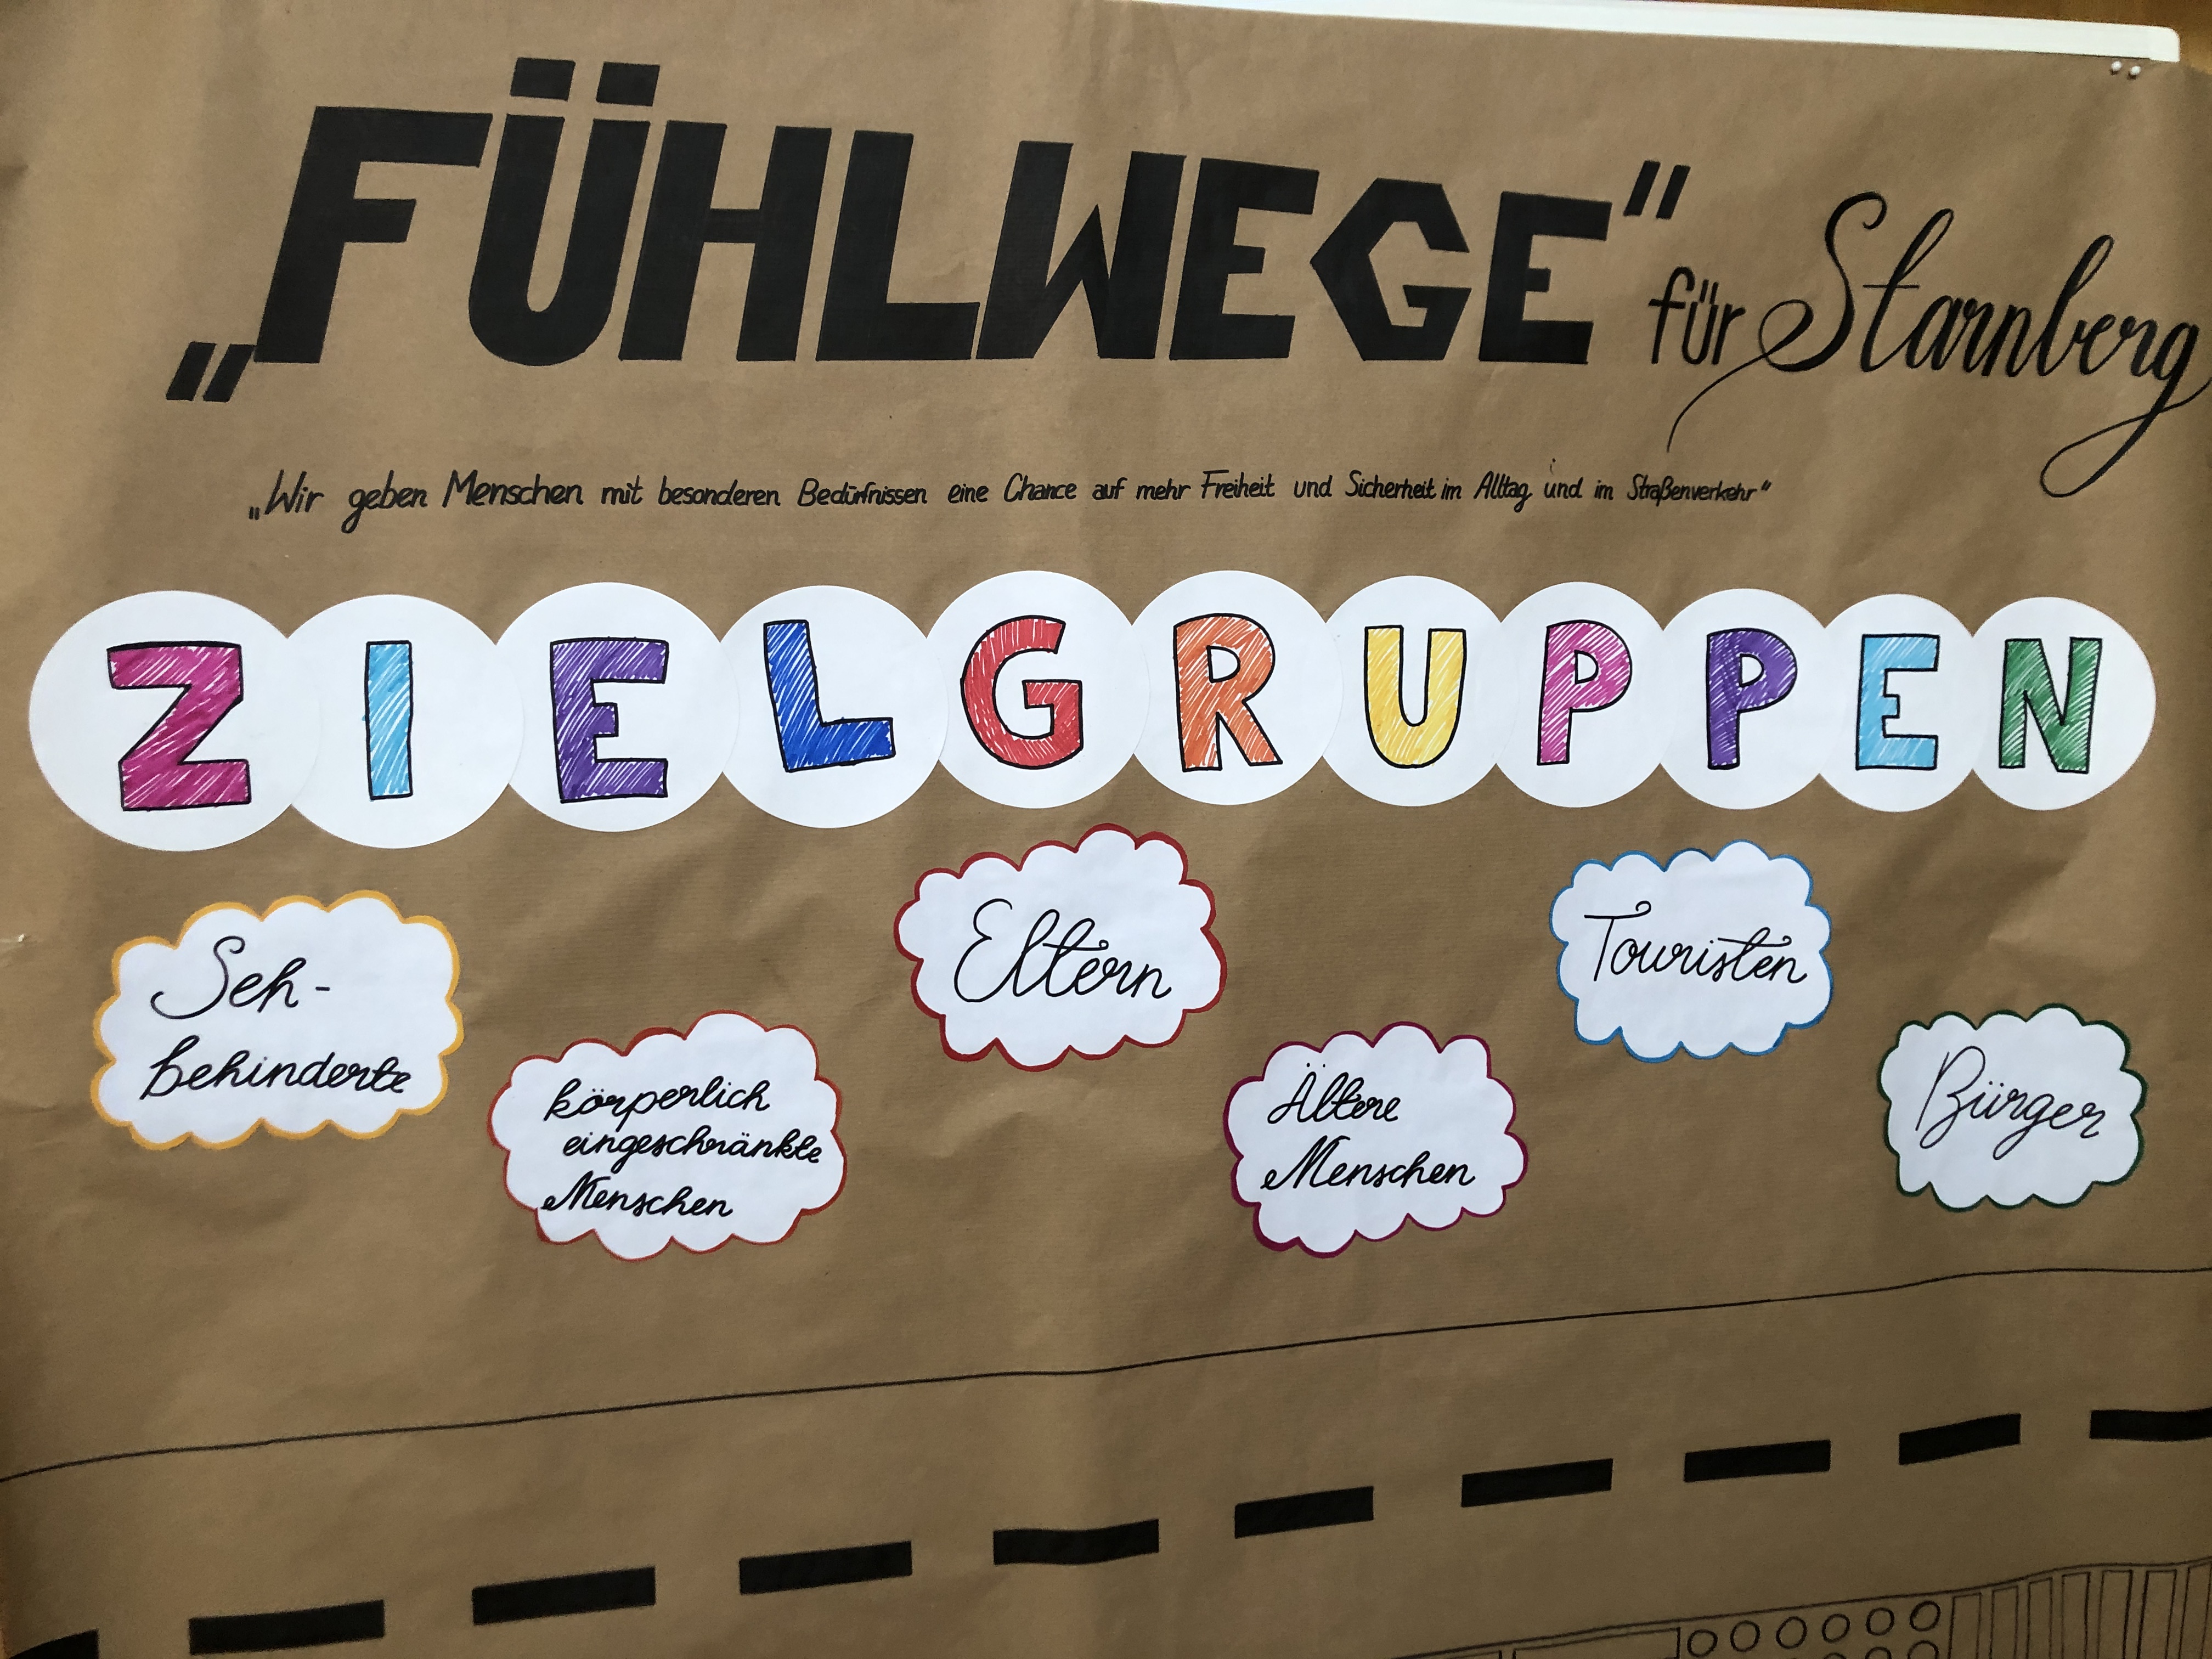 „FÜHLWEGE“ für Starnberg
„Wir geben Menschen mit besonderen Bedürfnissen eine Chance auf mehr Freiheit und Sicherheit im Alltag und im Straßenverkehr“
ZIELGRUPPEN
Seh-
behinderte
körperlich
eingeschränkte
Menschen
Eltern
Ältere
Menschen
Touristen
Bürger